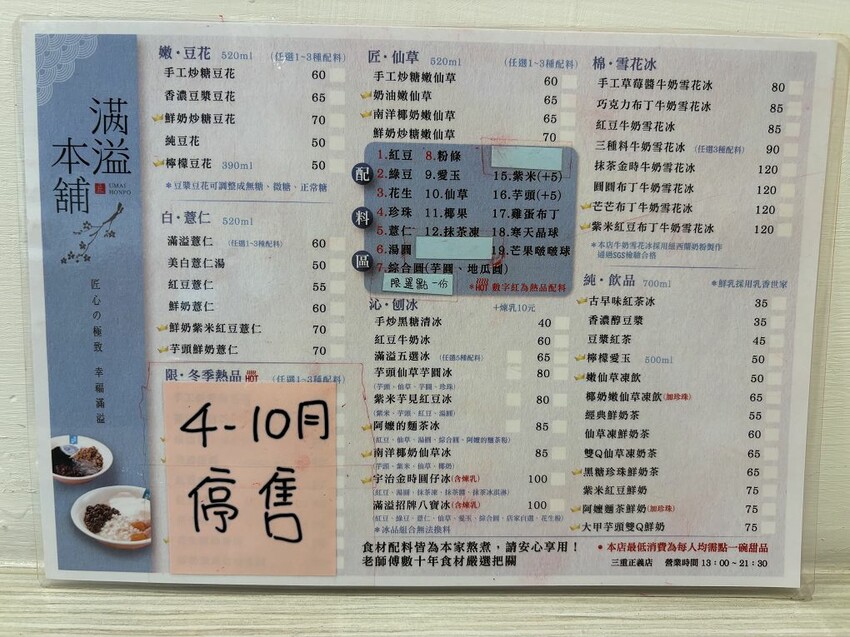 滿溢
本舖
UMAI
HONPO
匠心の極致 幸福滿溢
嫩·豆花 520ml (任選1~3種配料)
手工炒糖豆花 60
香濃豆漿豆花 65
鮮奶炒糖豆花 70
純豆花 50
檸檬豆花 390ml 50
*豆漿豆花可調整成無糖,微糖、正常糖
白·薏仁 520ml
滿溢薏仁 (任選1~3種配料) 60
美白薏仁湯 50
紅豆薏仁 55
鮮奶薏仁 60
鮮奶紫米紅豆薏仁 70
芋頭鮮奶薏仁 70
限·冬季熱品 HOT (任選1~3種配料)
4-10月
停售
匠·仙草 520ml (任選1~3種配料)
手工炒糖嫩仙草 60
奶油嫩仙草 65
南洋椰奶嫩仙草 65
鮮奶炒糖嫩仙草 70
配料區
1.紅豆 8.粉條
2.綠豆 9.愛玉 15.紫米(+5)
3.花生 10.仙草 16.芋頭(+5)
4.珍珠 11.椰果 17.雞蛋布丁
5.薏仁 12.抹茶凍 18.寒天晶球
6.湯圓 19.芒果啵啵球
7.綜合圓(芋圓、地瓜圓)
限選點一份
*HOT 數字紅為熱品配料
沁·刨冰 +煉乳10元
手炒黑糖清冰 40
紅豆牛奶冰 60
滿溢五選冰 (任選5種配料) 65
芋頭仙草芋圓冰 80
(芋頭、仙草、芋圓、珍珠)
紫米芋見紅豆冰 80
(紫米、芋頭、紅豆、湯圓)
阿嬤的麵茶冰 85
(紅豆、仙草、湯圓、綜合圓、阿嬤的麵茶粉)
南洋椰奶仙草冰 85
(芋頭、紫米、仙草、椰奶)
宇治金時圓仔冰(含煉乳) 100
(紅豆、湯圓、抹茶凍、抹茶醬、抹茶冰淇淋)
滿溢招牌八寶冰(含煉乳) 100
(紅豆、綠豆、薏仁、仙草、愛玉、綜合圓、店家自選、花生粉)
*冰品組合無法換料
棉·雪花冰
手工草莓醬牛奶雪花冰 80
巧克力布丁牛奶雪花冰 85
紅豆牛奶雪花冰 85
三種料牛奶雪花冰 (任選3種配料) 90
抹茶金時牛奶雪花冰 120
圓圓布丁牛奶雪花冰 120
芒芒布丁牛奶雪花冰 120
紫米紅豆牛奶雪花冰 120
*本店牛奶雪花冰採用紐西蘭奶粉製作
通過SGS檢驗合格
純·飲品 700ml *鮮乳採用乳香世家
古早味紅茶冰 35
香濃醇豆漿 35
豆漿紅茶 45
檸檬愛玉 500ml 50
嫩仙草凍飲 50
椰奶嫩仙草凍飲(加珍珠) 65
經典鮮奶茶 55
仙草凍鮮奶茶 60
雙Q仙草凍奶茶 65
黑糖珍珠鮮奶茶 65
紫米紅豆鮮奶 75
阿嬤麵茶鮮奶(加珍珠) 75
大甲芋頭雙Q鮮奶 75
食材配料皆為本家熬煮,請安心享用!
老師傅數十年食材嚴選把關
*本店最低消費為每人均需點一碗甜品
三重正義店 營業時間 13:00~21:30